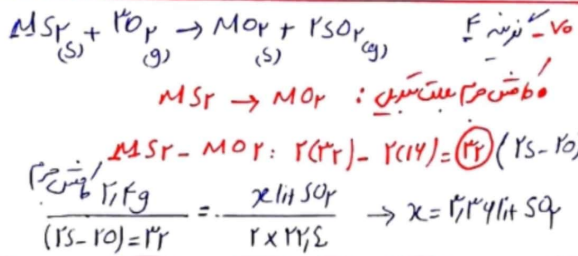 ۷۰_ گزینه ۴
MS۲(s) + ۳O۲(g) → MO۲(s) + ۲SO۲(g)
کاهش جرم بعلت تبدیل : MS۲ → MO۲
MS۲ - MO۲ : ۲(۳۲) - ۲(۱۶) = ۳۲ (۲S - ۲O)
کاهش جرم ۲٫۴g / (۲S - ۲O) = ۳۲ = x lit SO۲ / ۲ × ۲۲٫۴ → x = ۳٫۳۶ lit SO۲